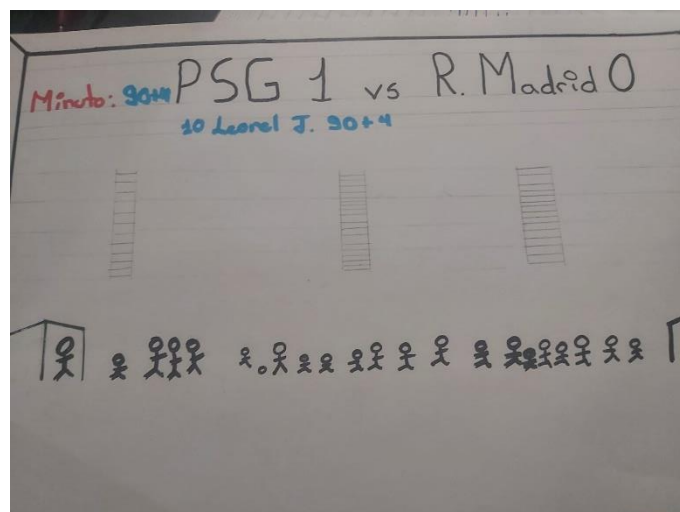 Minuto: 90+4 PSG 1 vs R. Madrid 0
10 Leonel J. 90+4